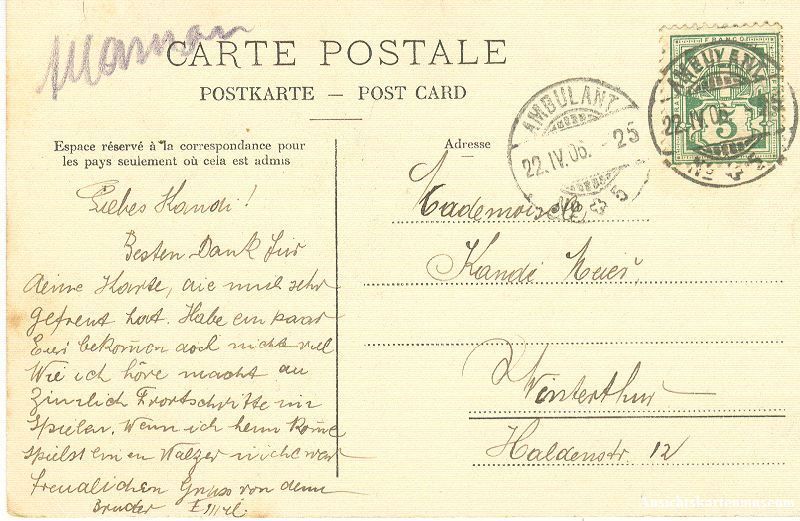 Maman
CARTE POSTALE
POSTKARTE — POST CARD
Espace réservé à la correspondance pour
les pays seulement où cela est admis
Adresse
FRANCO
5
AMBULANT
22.IV.06. - 25
No 5
AMBULANT
22.IV.06. -
No 5
Liebes Kandi!
Besten Dank für
deine Karte, die mich sehr
gefreut hat. Habe ein paar
Eier bekommen doch nicht viel
Wie ich höre macht du
Zimlich Frortschritte im
spielen. Wenn ich heim kome
spielst em en Walzer nicht war
Freualichen Gruss von dem
Bruder Emil.
Mademoiselle
Kandi Meier,
Winterthur
Haldenstr. 12
Ansichtskartenmuseum.com